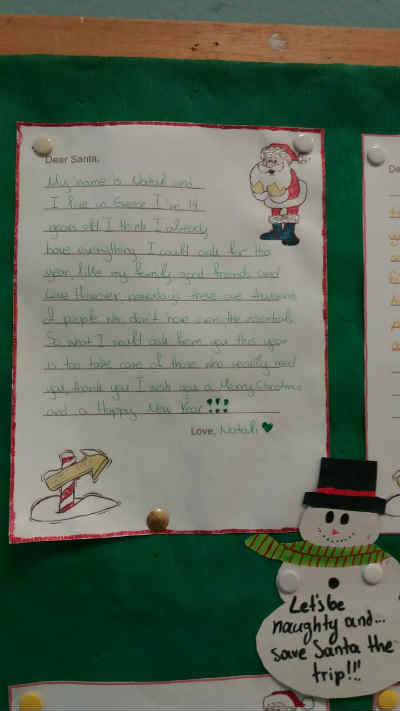 Dear Santa,
My name is Natali and
I live in Greece I've 14
years old I think I already
have everything I could ask for this
year, like my family, good friends and
love. However, nowadays there are thousands
of people who don't have even the essentials.
So what I would ask from you this year
is too take care of those who really need
you, thank you I wish you a Merry Christmas
and a Happy New Year!!!
Love, Natali
De
Let's be
naughty and...
save Santa the
trip!!!